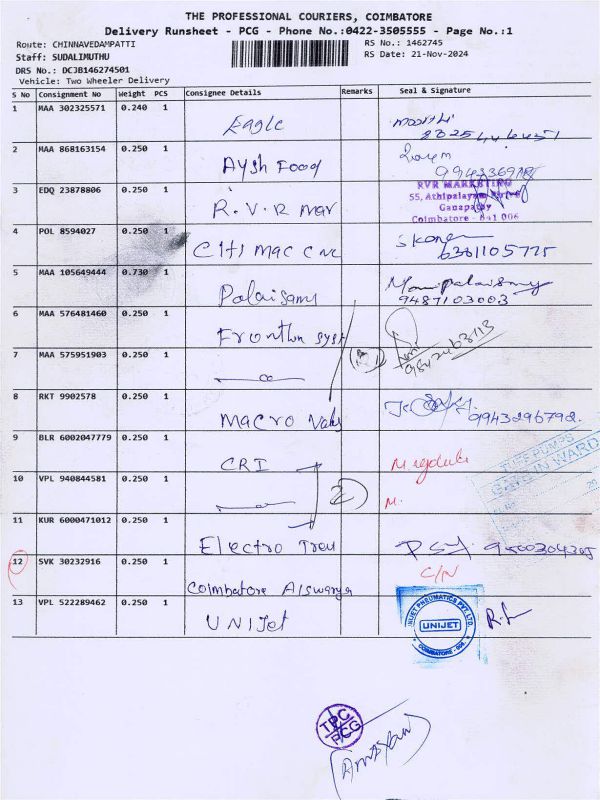 THE PROFESSIONAL COURIERS, COIMBATORE
Delivery Runsheet - PCG - Phone No.:0422-3505555 - Page No.:1
Route: CHINNAVEDAMPATTI
RS No.: 1462745
Staff: SUDALIMUTHU
RS Date: 21-Nov-2024
DRS No.: DCJB146274501
Vehicle: Two Wheeler Delivery
S No Consignment No Weight PCS Consignee Details Remarks Seal & Signature
1 MAA 302325571 0.240 1
Eagle
2 MAA 868163154 0.250 1
Aysh Food
3 EDQ 23878806 0.250 1
R.V.R mar
RVR MARKETING
55, Athipalayam
Ganapathy
Coimbatore - 641 006
4 POL 8594027 0.250 1
Citi mac cnc
6381105775
5 MAA 105649444 0.730 1
Palaisamy
9487103003
6 MAA 576481460 0.250 1
7 MAA 575951903 0.250 1
8 RKT 9902578 0.250 1
Macro 9943296792.
9 BLR 6002047779 0.250 1
CRI
10 VPL 940844581 0.250 1
2
M.
11 KUR 6000471012 0.250 1
Electro 9500304305
12 SVK 30232916 0.250 1
C/N
Coimbatore Aiswarya
13 VPL 522289462 0.250 1
UNIJet
UNIJET PNEUMATICS PVT. LTD.
UNIJET
COIMBATORE
TPC
PCG